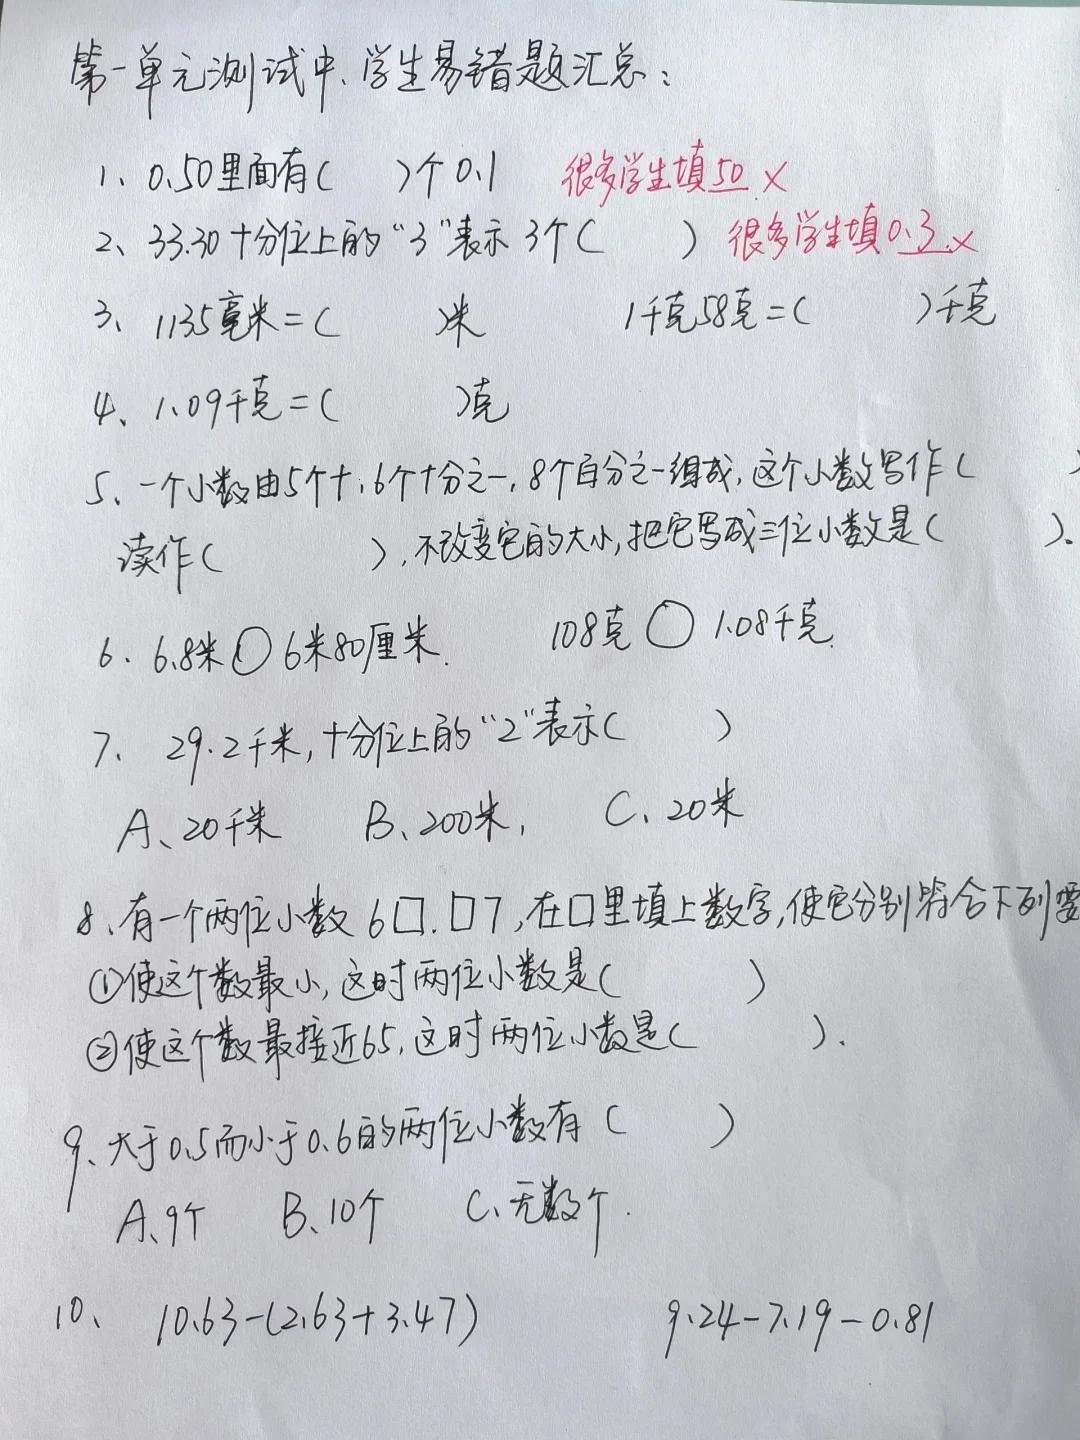 第一单元测试中、学生易错题汇总：
1、0.50里面有( )个0.1 很多学生填50 ×
2、33.30十分位上的“3”表示3个( ) 很多学生填0.3 ×
3、1135毫米=( )米 1千克58克=( )千克
4、1.09千克=( )克
5、一个小数由5个十，6个十分之一，8个百分之一组成，这个小数写作( )
读作( )，不改变它的大小，把它写成三位小数是( )。
6、6.8米○6米80厘米. 108克○1.08千克.
7、29.2千米，十分位上的“2”表示( )
A、20千米 B、200米， C、20米
8、有一个两位小数6□.□7，在□里填上数字，使它分别符合下列要
①使这个数最小，这时两位小数是( )
②使这个数最接近65，这时两位小数是( ).
9、大于0.5而小于0.6的两位小数有( )
A、9个 B、10个 C、无数个.
10、10.63-(2.63+3.47) 9.24-7.19-0.81